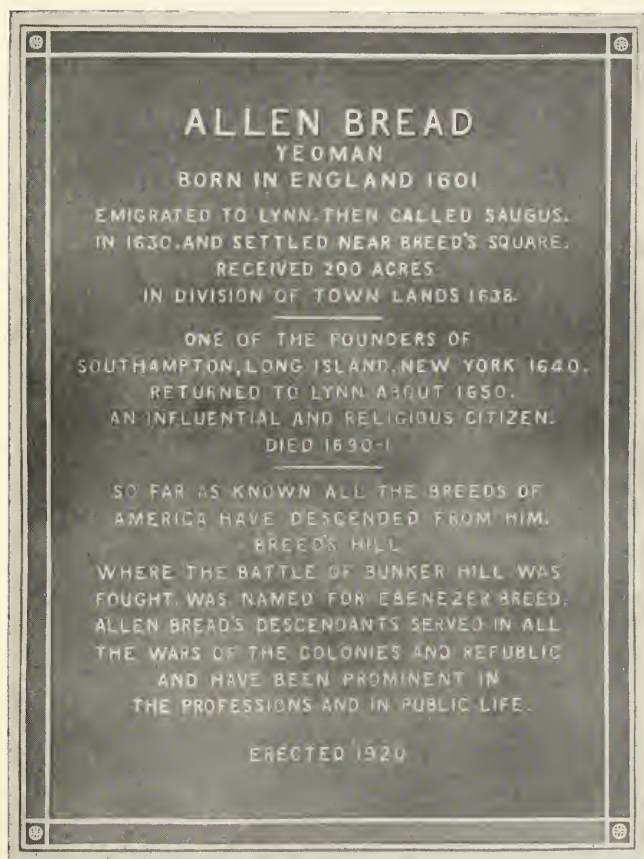 ALLEN BREAD
YEOMAN
BORN IN ENGLAND 1601
EMIGRATED TO LYNN. THEN CALLED SAUGUS.
IN 1630. AND SETTLED NEAR BREED'S SQUARE.
RECEIVED 200 ACRES
IN DIVISION OF TOWN LANDS 1638.
ONE OF THE FOUNDERS OF
SOUTHAMPTON, LONG ISLAND, NEW YORK 1640.
RETURNED TO LYNN ABOUT 1650.
AN INFLUENTIAL AND RELIGIOUS CITIZEN.
DIED 1690-1
SO FAR AS KNOWN ALL THE BREEDS OF
AMERICA HAVE DESCENDED FROM HIM.
BREED'S HILL
WHERE THE BATTLE OF BUNKER HILL WAS
FOUGHT, WAS NAMED FOR EBENEZER BREED.
ALLEN BREAD'S DESCENDANTS SERVED IN ALL
THE WARS OF THE COLONIES AND REPUBLIC
AND HAVE BEEN PROMINENT IN
THE PROFESSIONS AND IN PUBLIC LIFE.
ERECTED 1920